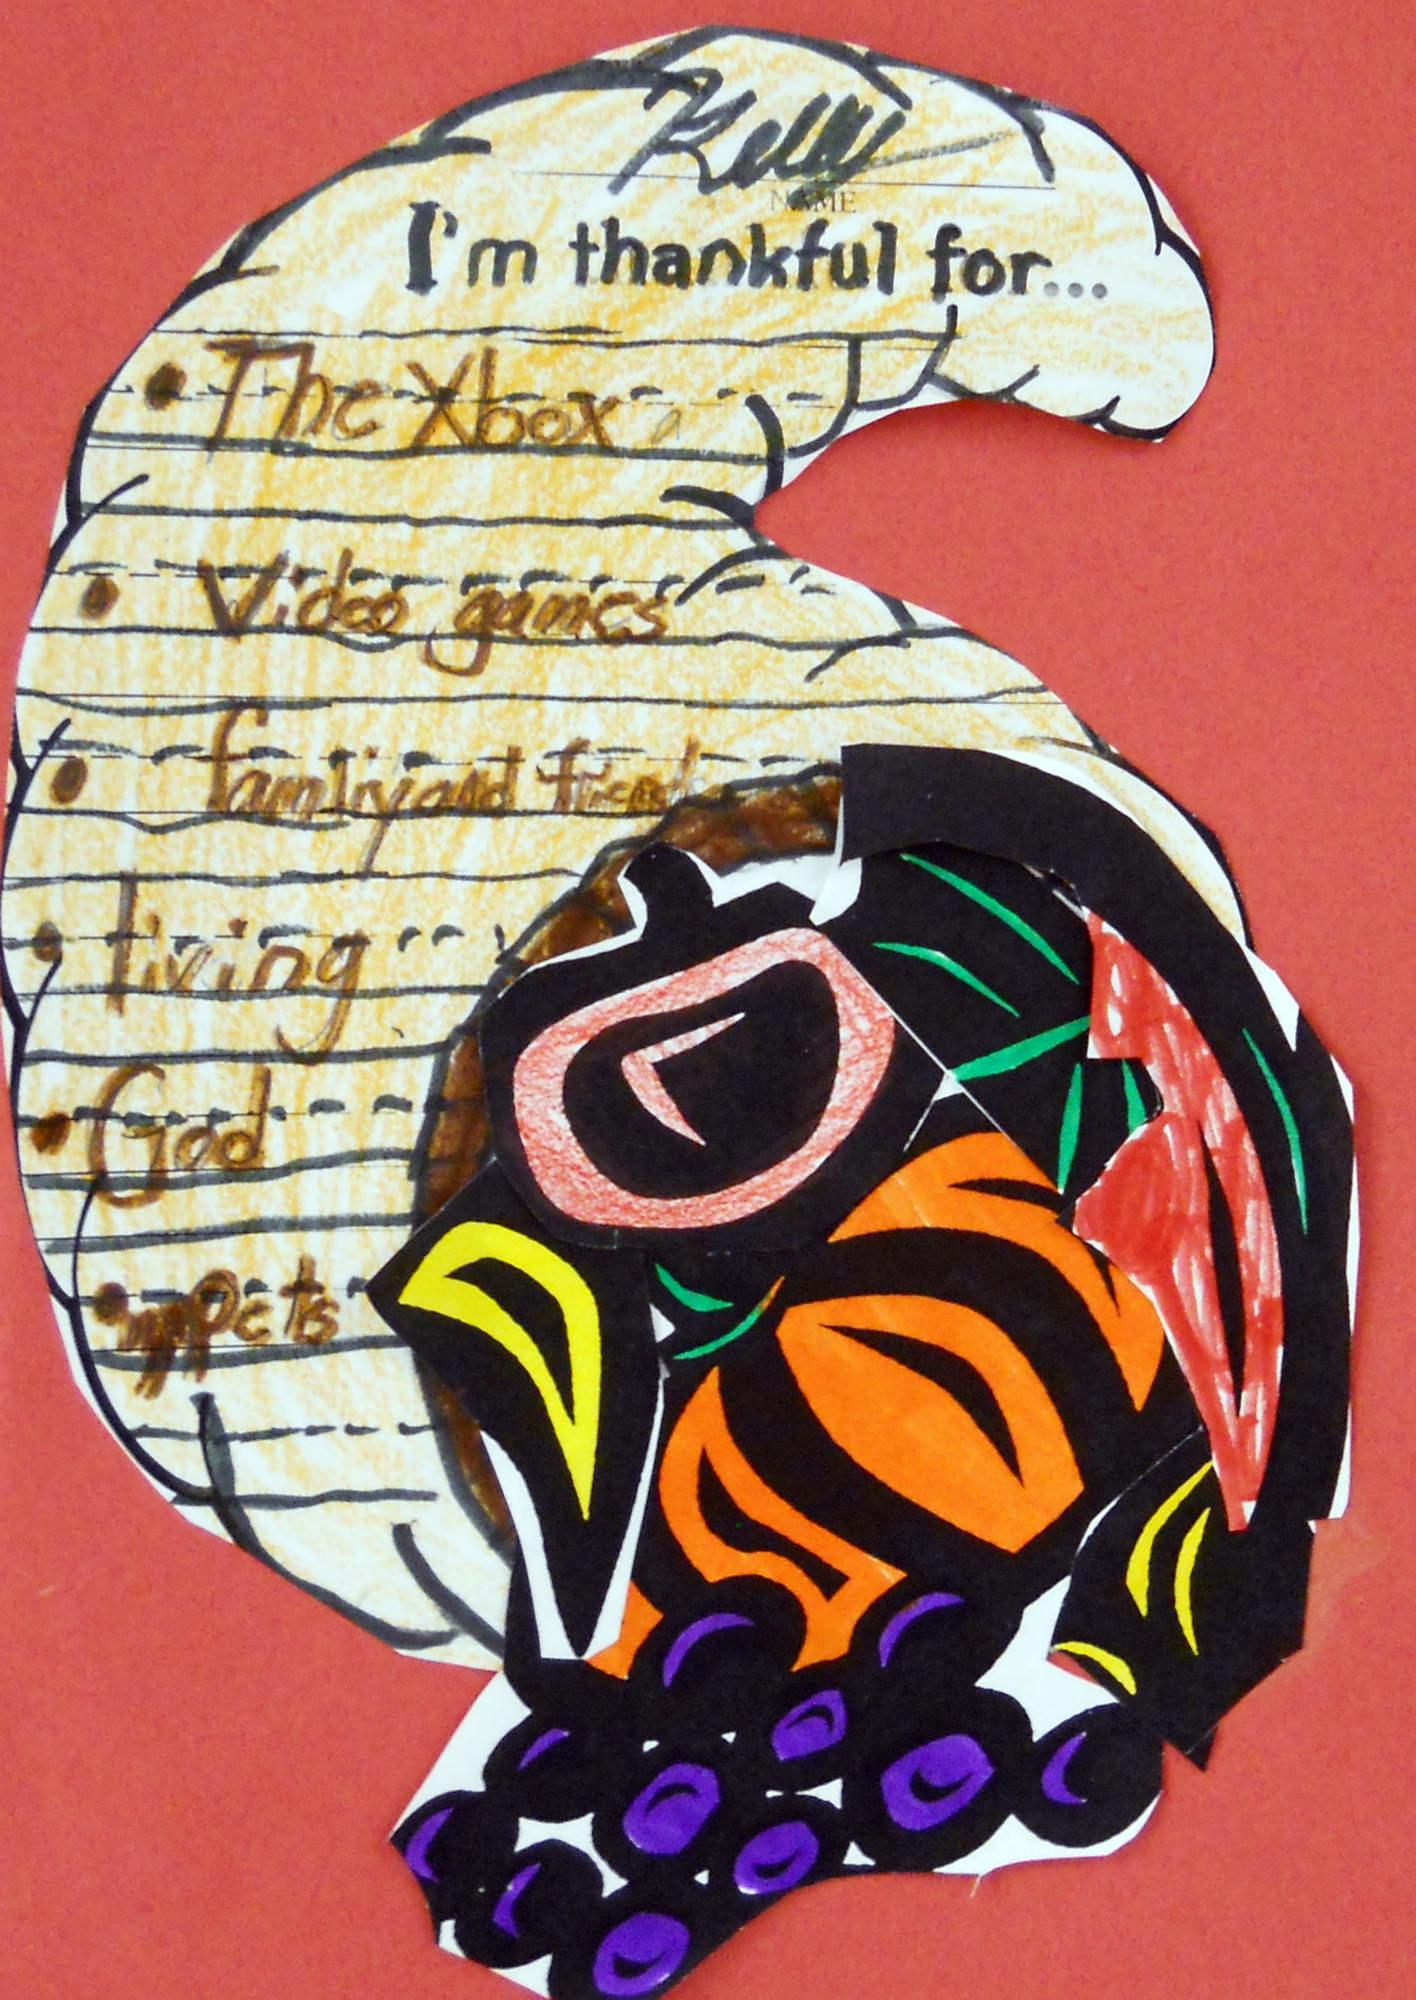 Kelly
NAME
I'm thankful for...
• The Xbox
• Video games
• famliy and friends
• living
• God
• my pets